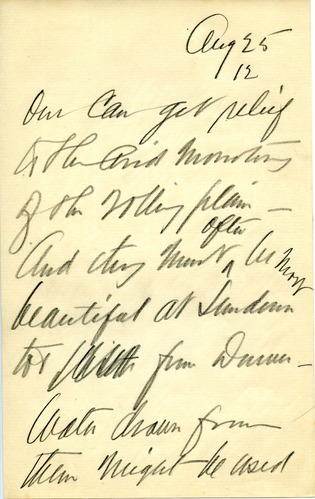 Aug 25
12
One can get relief
to the Arid Monotony
of the rolling plain —
often
And they must be most
beautiful at Sundown
too from Denver —
Water drawn from
them might be used